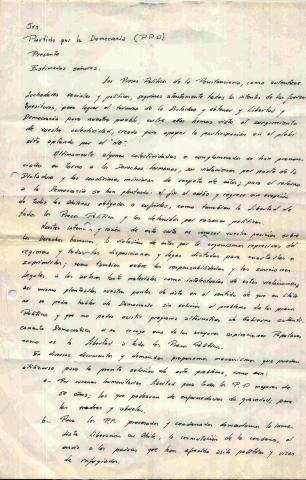 Srs
Partido por la Democracia (P.P.D)
Presente.
Estimados señores.
Los Presos Políticos de la Penitenciaria, como auténticos
luchadores sociales y políticos, seguimos atentamente todos los intentos de las fuerzas
opositoras, para lograr el término de la Dictadura y obtener la Libertad y
Democracia para nuestro pueblo, entre ellos hemos visto el surgimiento
de vuestra colectividad, creada para apoyar la participación en el plebi
cito optando por el "NO"
Ultimamente algunas colectividades o conglomerados se han pronun
ciado en torno a los Derechos Humanos, su violaciones por parte de la
Dictadura y las condiciones mínimas de respeto de ellos; para el retorno
a la Democracia se han planteado el fin al exilio y regreso sin excepción
de todos los chilenos obligados a sufrirlo, como también la libertad de
todos los Presos Políticos y los detenidos por razones políticas.
Nuestra intención y razón de esta carta es conocer vuestra posición sobre
los Derechos humanos, la violación de estos por los organismos represivos del
régimen y todas las disposiciones y leyes dictadas para
como también sobre las responsabilidades y las sanciones
legales a los autores tanto materiales como intelectuales de estas violaciones,
así mismo plantearles nuestro punto de vista en el sentido de que en Chile
no se podrá hablar de Democracia sin solución al problema de los presos
Políticos y que no podrá existir programa alternativo de Gobierno auténti
camente Democrático si no recoge una de las mayores aspiraciones Populares
como es la Libertad a todos los Presos Políticos.
En diversos documentos y demandas proponemos mecanismos que pueden
utilizarse para la pronta solución de este problema, como son:
a.- Por razones humanitarias libertad para todos los P.P mayores de
50 años; los que padezcan de enfermedades de gravedad; para
las madres y abuelos.
b.- Para los P.P. procesados y condenados demandamos la inme
diata liberación en Chile, la conmutación de la condena, el
envío a los países que han ofrecido asilo político y visas
de refugiados.